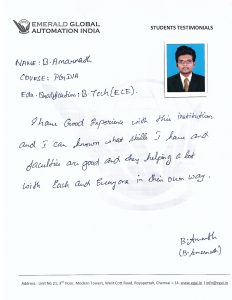 EMERALD GLOBAL
AUTOMATION INDIA
STUDENTS TESTIMONIALS
NAME: B. Amarnath
COURSE: PGIVA
Edu. Qualification: B.Tech (ECE).
I have Good Experience with this institution
and I can known what skills I have and
faculties are good and they helping a lot
with Each and Everyone in their own way.
B. Amarnath
(B. Amarnath)
Address : Unit No 21, 3rd Floor, Modern Towers, West Cott Road, Royapettah, Chennai – 14. www.egai.in | info@egai.in